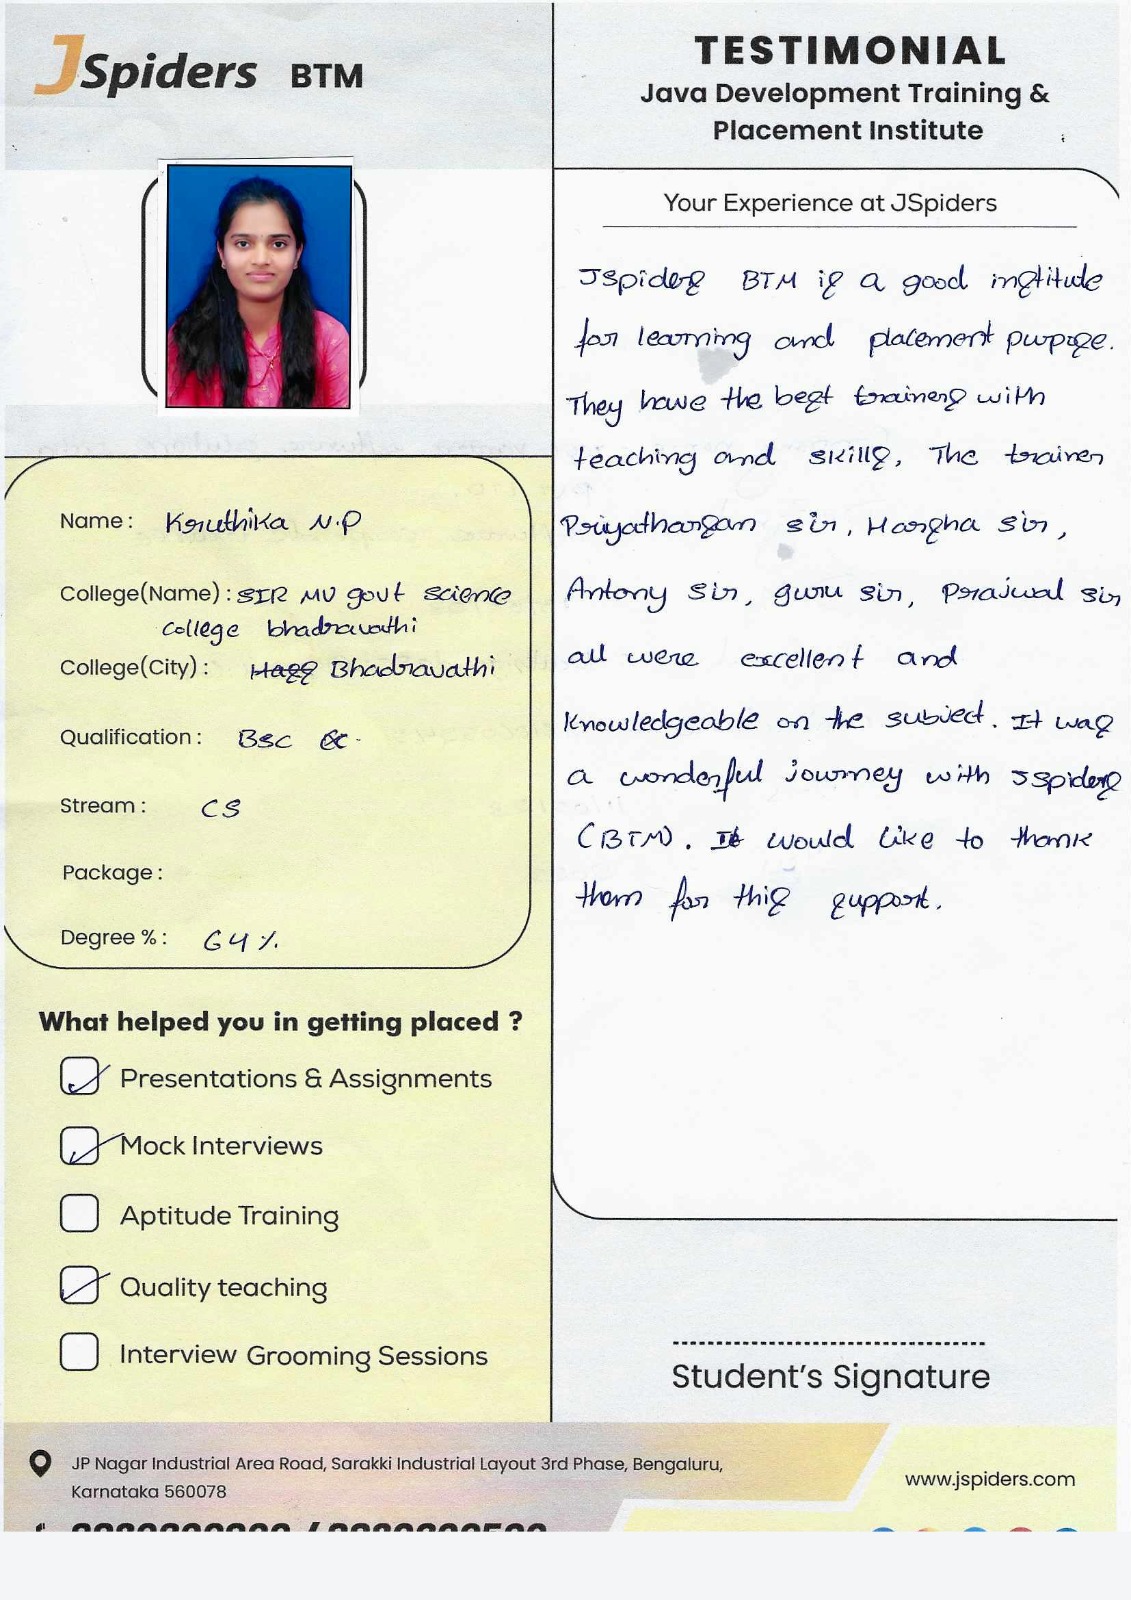 JSpiders BTM
TESTIMONIAL
Java Development Training &
Placement Institute
Your Experience at JSpiders
JSpiders BTM is a good institute
for learning and placement purpose.
They have the best trainers with
teaching and skills, The trainer
Priyatharsan sir, Harsha sir,
Antony sir, guru sir, Prajwal sir
all were excellent and
knowledgeable on the subject. It was
a wonderful journey with JSpiders
(BTM). It would like to thank
them for this support.
Name : Kruthika N.P
College(Name) : SIR MV govt science
college bhadravathi
College(City) : Bhadravathi
Qualification : Bsc
Stream : CS
Package :
Degree % : 64 %
What helped you in getting placed ?
Presentations & Assignments
Mock Interviews
Aptitude Training
Quality teaching
Interview Grooming Sessions
Student's Signature
JP Nagar Industrial Area Road, Sarakki Industrial Layout 3rd Phase, Bengaluru,
Karnataka 560078
www.jspiders.com